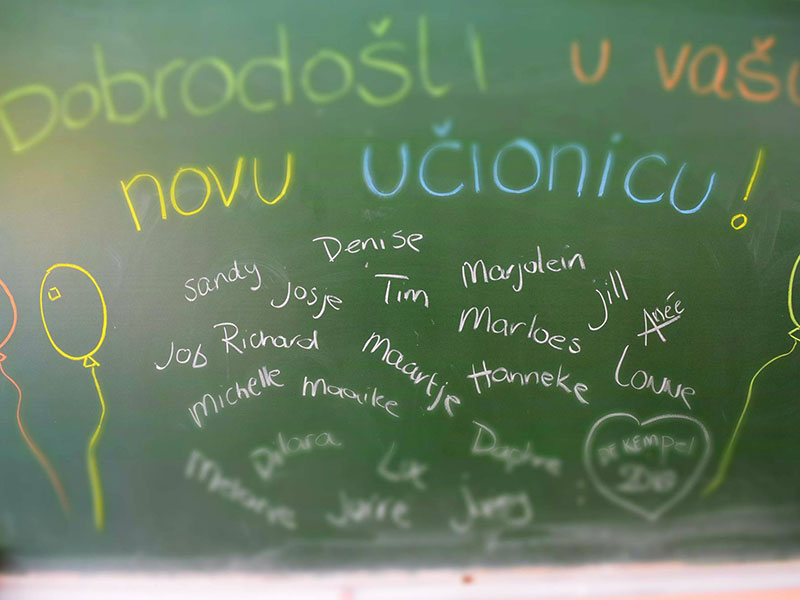 Dobrodošli u vašu
novu učionicu!
Denise
Sandy Josje Tim Marjolein Jill
Anée
Job Richard Maartje Marloes
Michelle Maaike Hanneke Lonne
Dilara Luc Daphne
Melanie Jurre
De Kempel